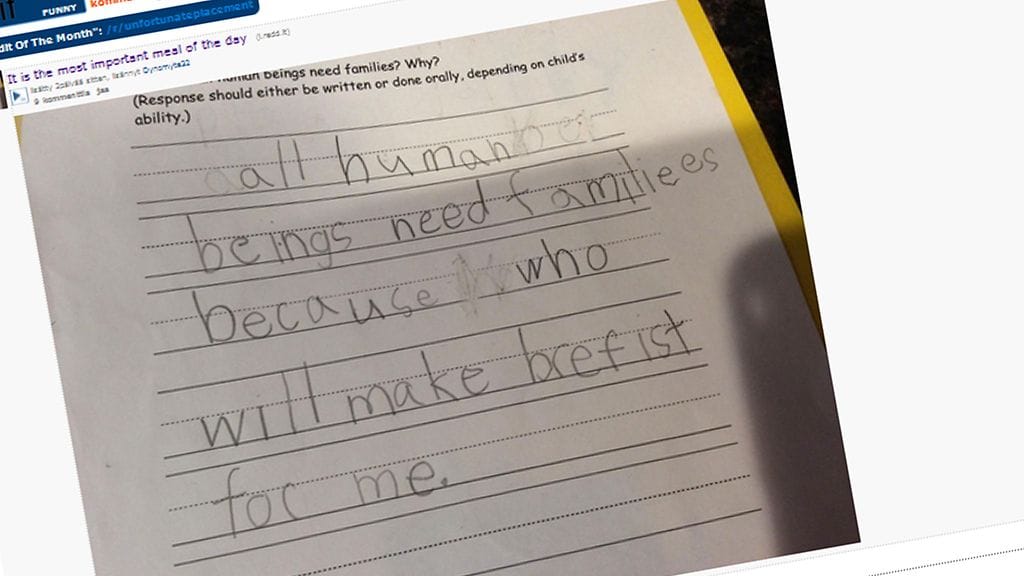 FUNNY
Of The Month": /r/unfortunateplacement
It is the most important meal of the day (i.redd.it)
lisätty 2päivää sitten, lisännyt
9 kommenttia jaa
human beings need families? Why?
(Response should either be written or done orally, depending on child's
ability.)
all human
beings need familiees
because who
will make brefist
for me.